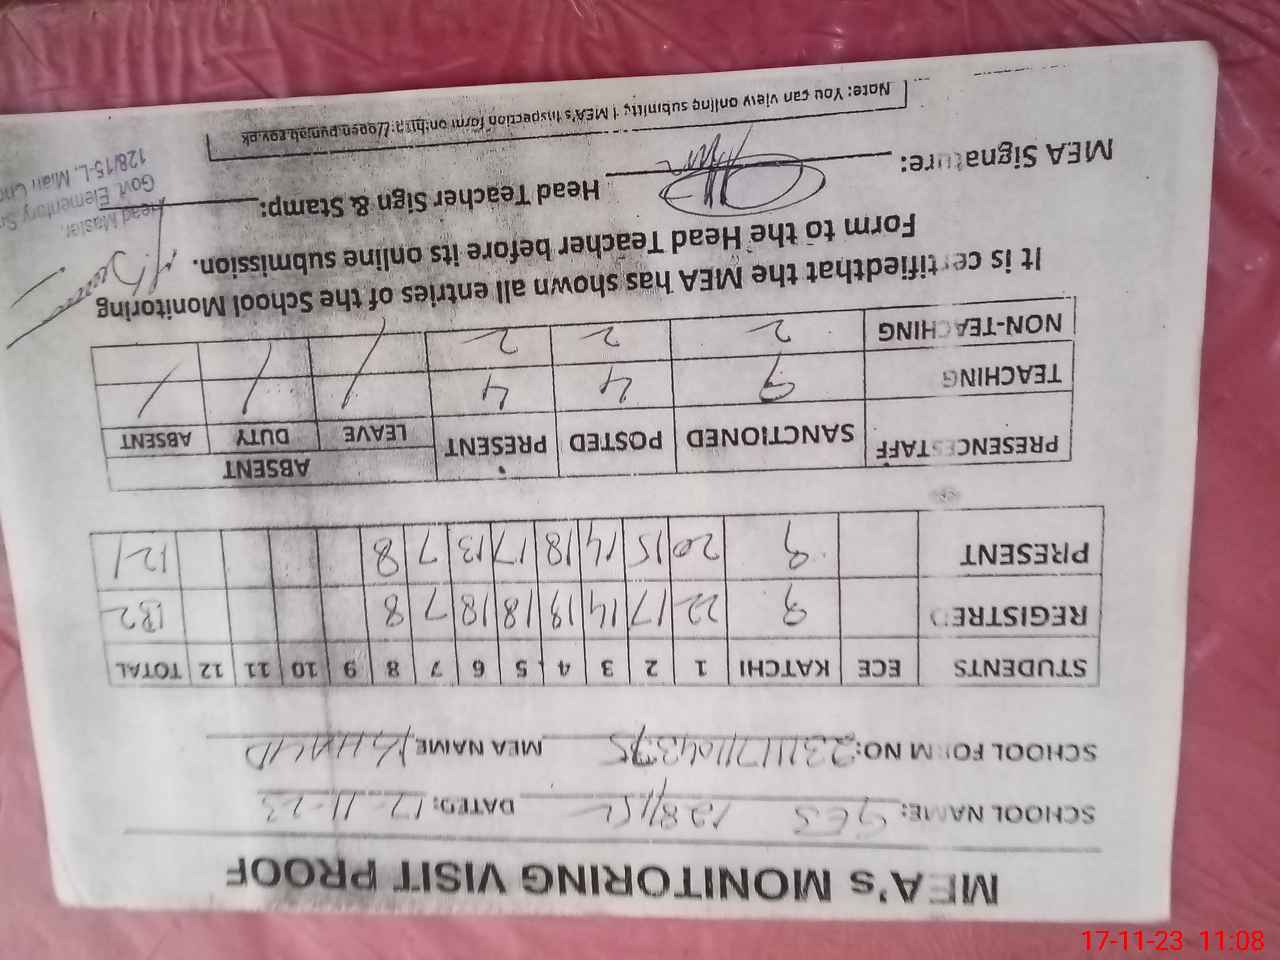 MEA's MONITORING VISIT PROOF
SCHOOL NAME: GES 128/15L DATED: 17-11-23
SCHOOL FORM NO: MEA NAME:
STUDENTS ECE KATCHI 1 2 3 4 5 6 7 8 9 10 11 12 TOTAL
REGISTRED 9 22 17 14 19 18 18 7 8 132
PRESENT 9 20 15 14 18 17 13 7 8 121
PRESENCE STAFF SANCTIONED POSTED PRESENT ABSENT
LEAVE DUTY ABSENT
TEACHING 9 4 4 / / /
NON-TEACHING 2 2 2 / / /
It is certifiedthat the MEA has shown all entries of the School Monitoring
Form to the Head Teacher before its online submission.
MEA Signature: Head Teacher Sign & Stamp:
Head Master,
Govt. Elementary
128/15-L, Mian
Note: You can view online MEA's inspection form on:http://open.punjab.gov.pk
17-11-23 11:08